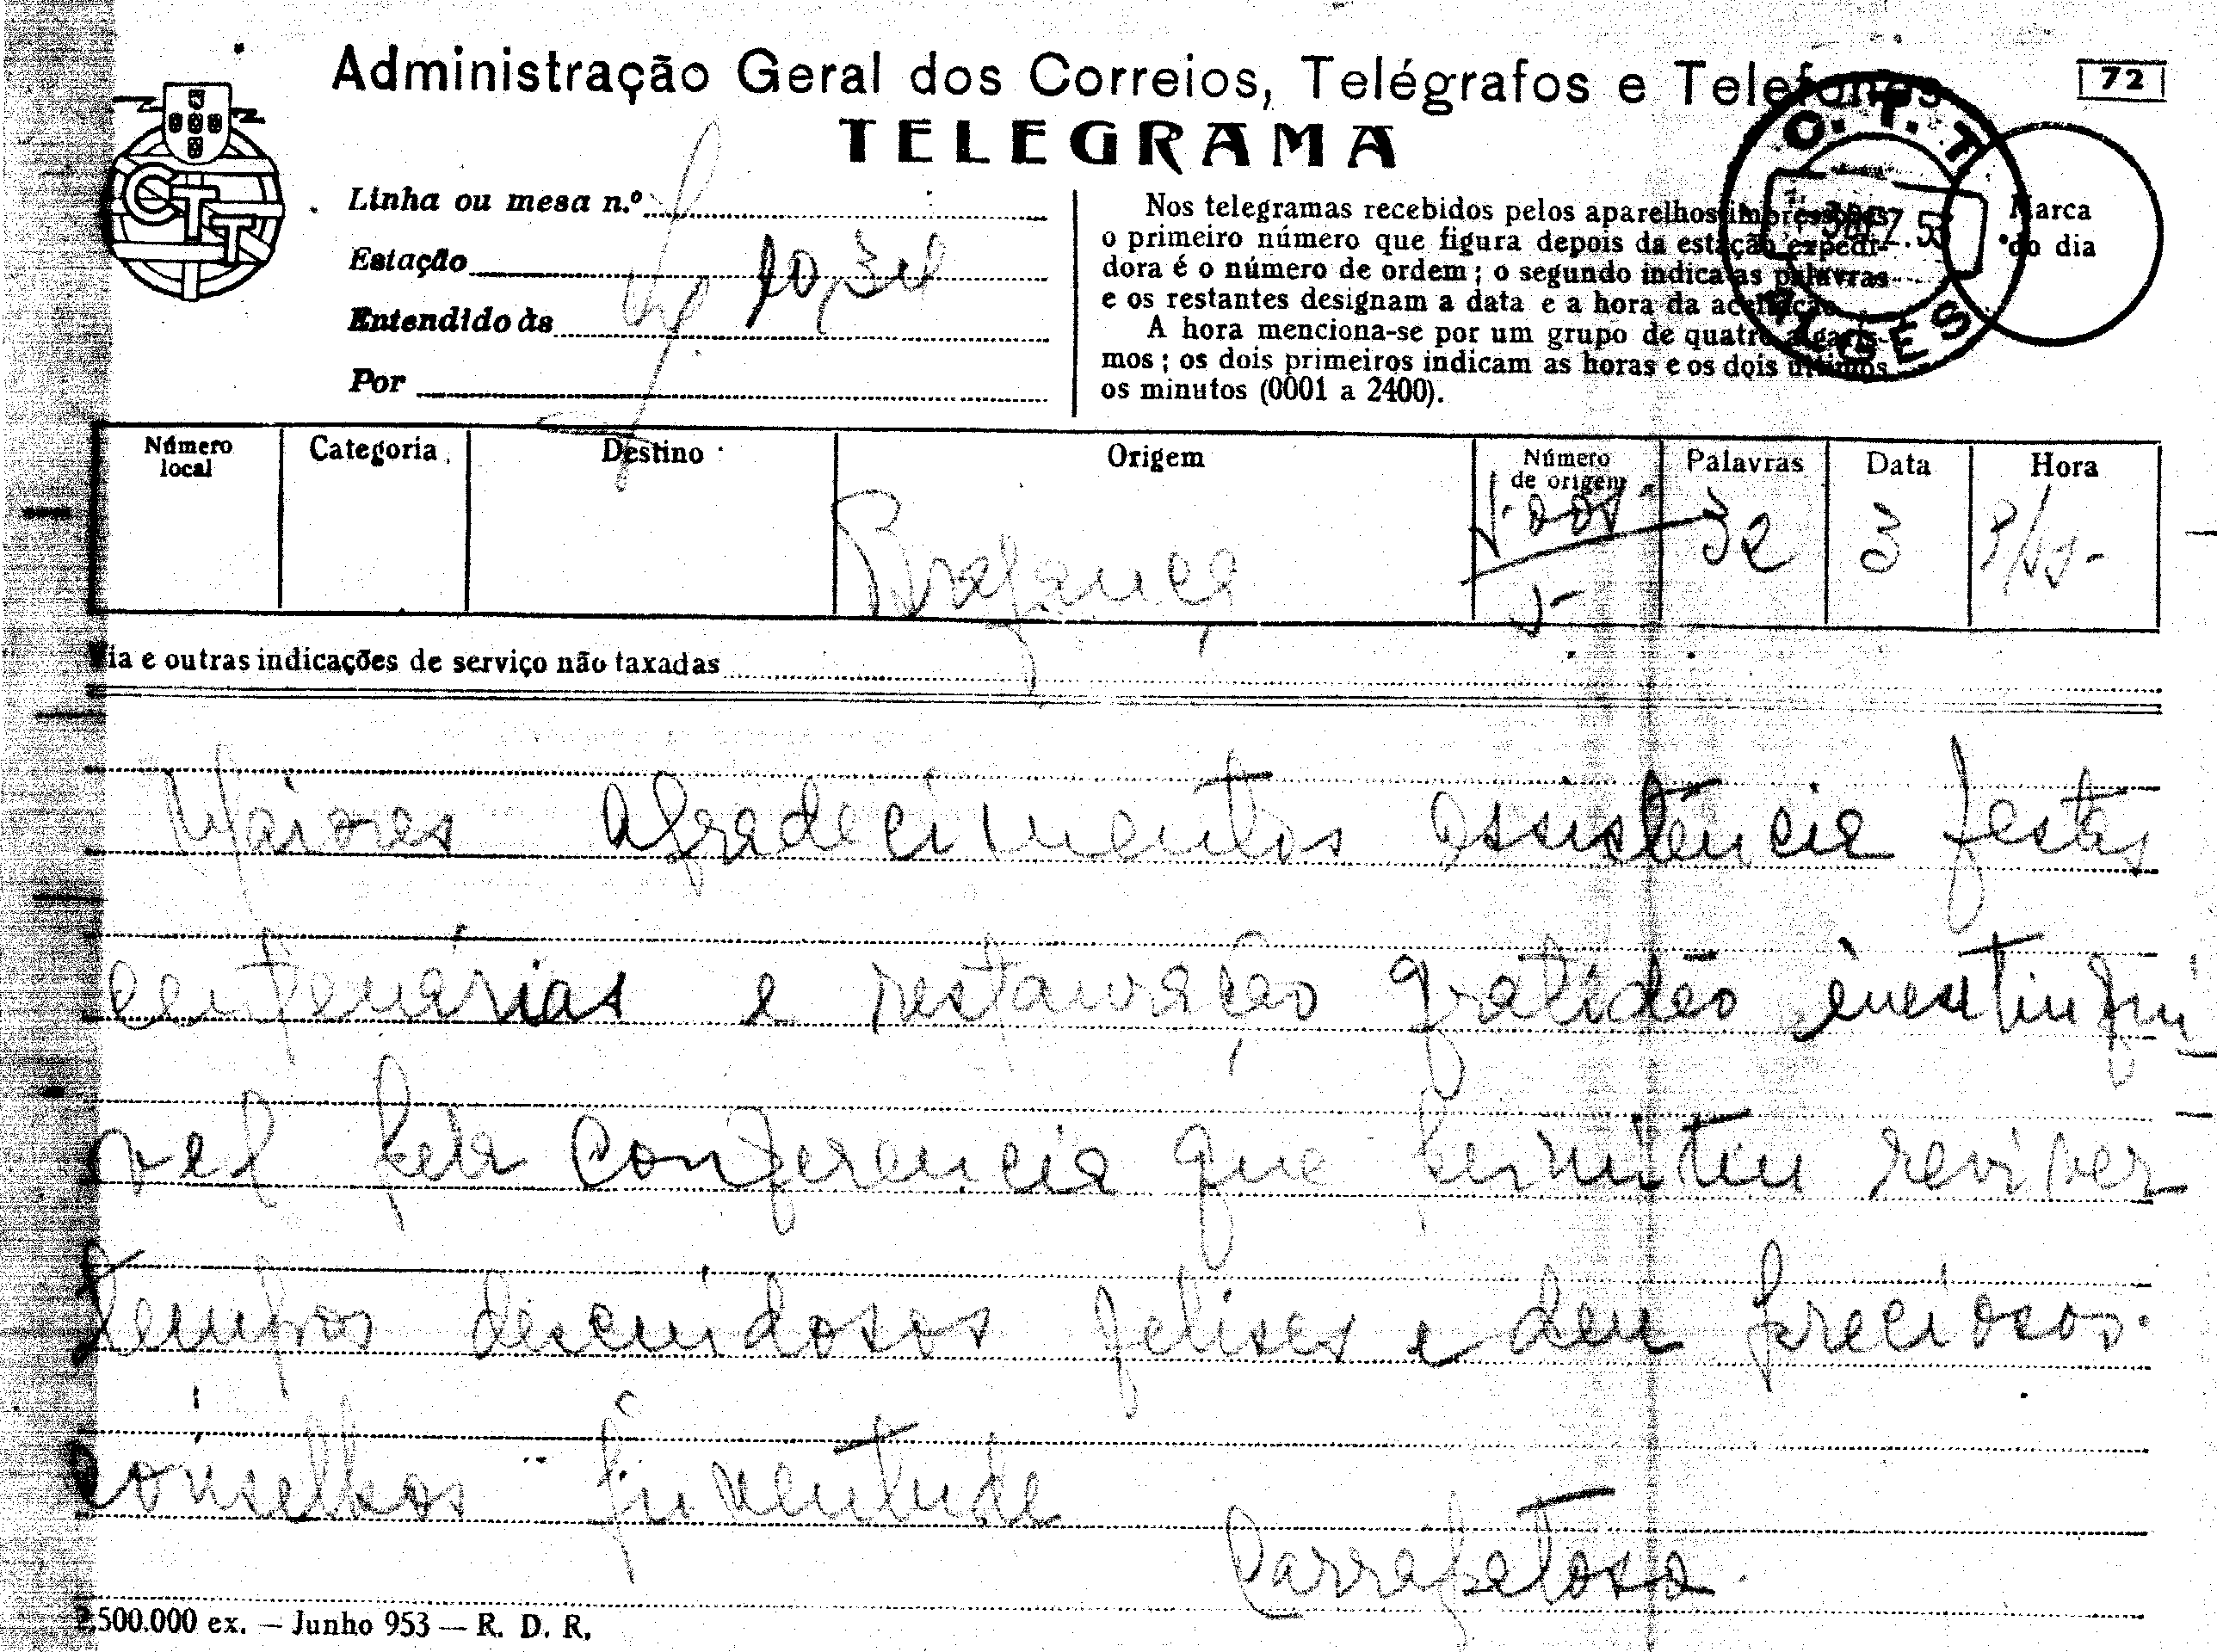 Administração Geral dos Correios, Telégrafos e Telefones
72
TELEGRAMA
CTT
C.T.T.
Linha ou mesa n.º
Estação
Entendido às
Por
Nos telegramas recebidos pelos aparelhos impressores
o primeiro número que figura depois da estação expedi-
dora é o número de ordem; o segundo indica as palavras
e os restantes designam a data e a hora da aceitação
A hora menciona-se por um grupo de quatro algaris-
mos; os dois primeiros indicam as horas e os dois últimos
os minutos (0001 a 2400).
Marca
do dia
Número local
Categoria
Destino
Origem
Número de origem
Palavras
Data
Hora
Bragança
32
3
Via e outras indicações de serviço não taxadas
Maiores agradecimentos assistência festas
centenárias e restauração gratidão inextingui
vel pela conferencia que permitiu reviver
tempos felises e deu preciosos
conselhos juventude
Carrapatoso
2.500.000 ex. — Junho 953 — R. D. R.